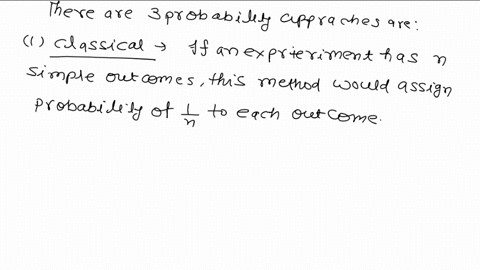 There are 3 probability appraches are:
(1) classical → If an exprteriment has n
simple outcomes, this method would assign
probability of 1/n to each outcome.